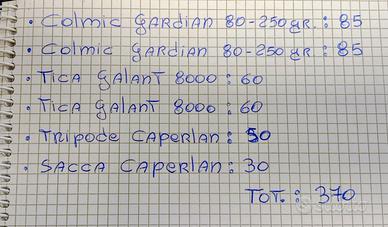 • Colmic GARDIAN 80-250 gR. : 85
• Colmic GARDIAN 80-250 gR. : 85
• TICA GALANT 8000 : 60
• TICA GALANT 8000 : 60
• TRIPODE CAPERLAN : 50
• SACCA CAPERLAN : 30
TOT. : 370